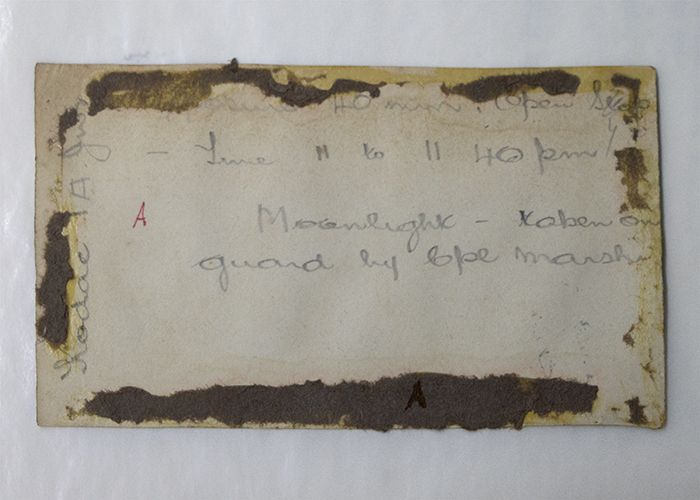 40 min. Open
— Time 11 to 11 40 pm
A
Moonlight – taken on
guard by Cpl
Kodac 1A
A